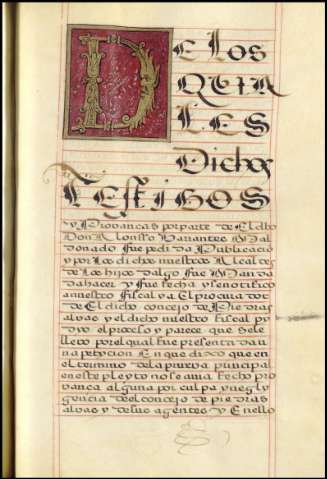 DE LOS
QUA
LES
Dichos
TESTIGOS
y Provanças por parte de El dho
Don Alonsso Barrantes Mal
donado fue pedida Publicacio
y por Los dichos nuestros Alcaldes
de Los hijos dalgo fue Manda
da hazer y fue fecha y se notifico
a nuestro fiscal y a El procurador
de El dicho concejo de Piedras
alvas y el dicho nuestro fiscal
el proceso y parece que se le
lleto por el qual fue presentada
una petycion En que dixo que en
el termino de la prueba principal
en este pleyto no se avia fecho pro
vança alguna por culpa y negly
gencia del concejo de piedras
alvas y de sus agentes y En ello